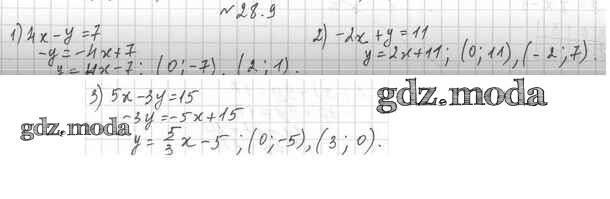 №28.9
1) 4x-y=7
-y=-4x+7
y=4x-7; (0;-7), (2;1).
2) -2x+y=11
y=2x+11; (0;11),(-2;7).
3) 5x-3y=15
-3y=-5x+15
y=5/3x-5; (0;-5),(3;0).
gdz.moda
gdz.moda